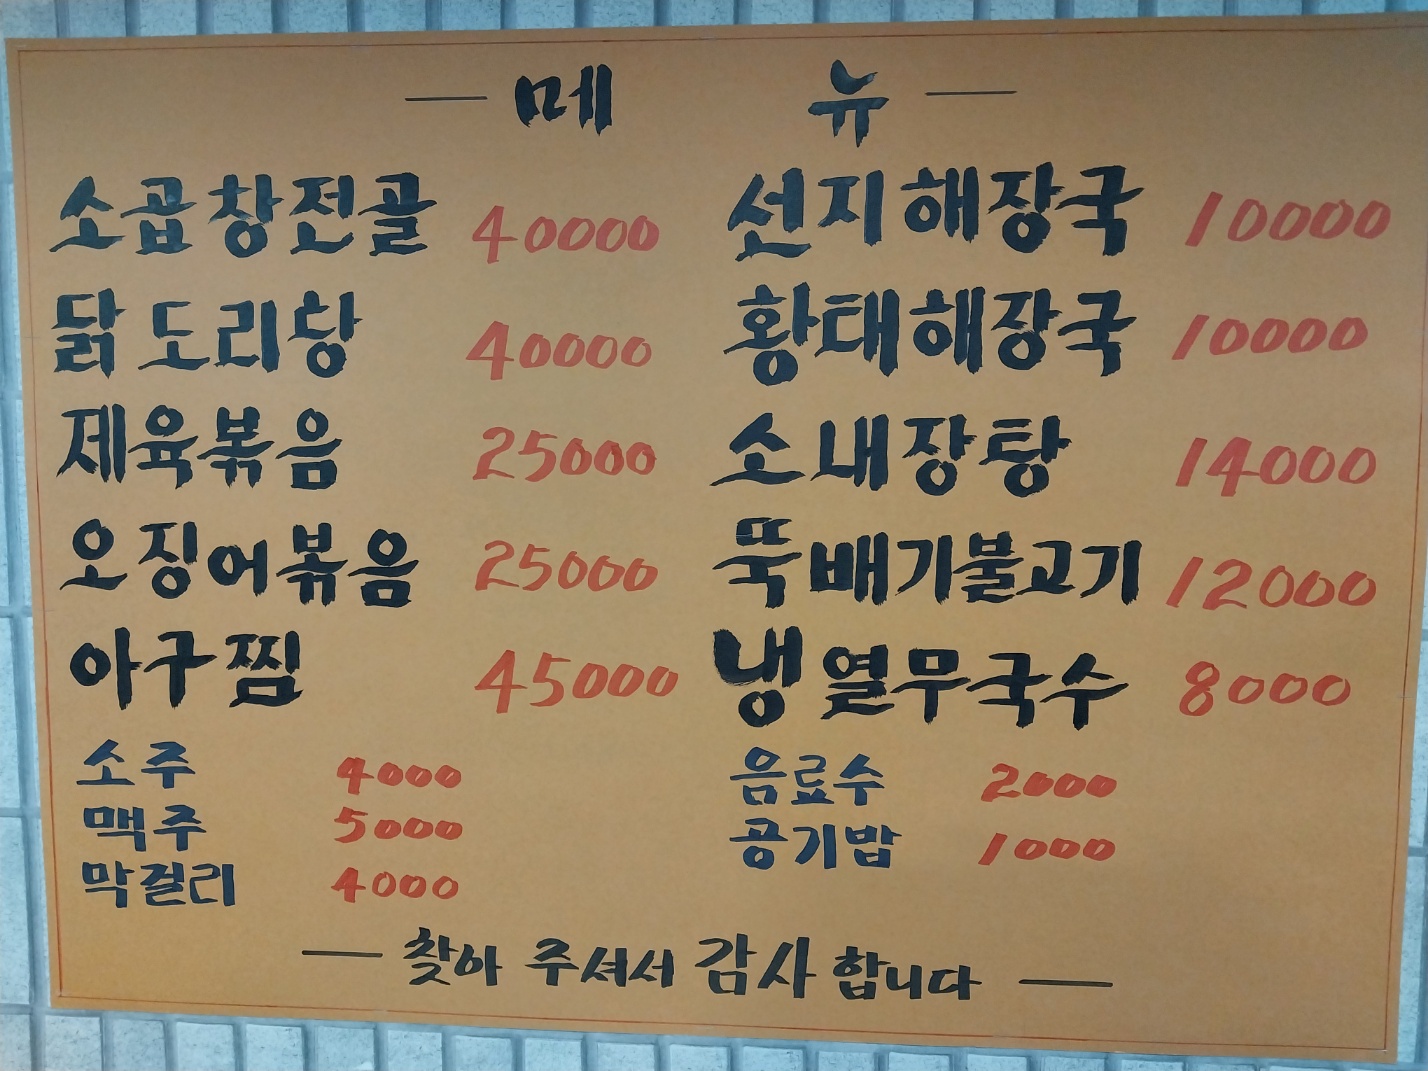 메 뉴
소곱창전골 40000
닭도리탕 40000
제육볶음 25000
오징어볶음 25000
아구찜 45000
소주 4000
맥주 5000
막걸리 4000
선지해장국 10000
황태해장국 10000
소내장탕 14000
뚝배기불고기 12000
냉열무국수 8000
음료수 2000
공기밥 1000
찾아 주셔서 감사 합니다